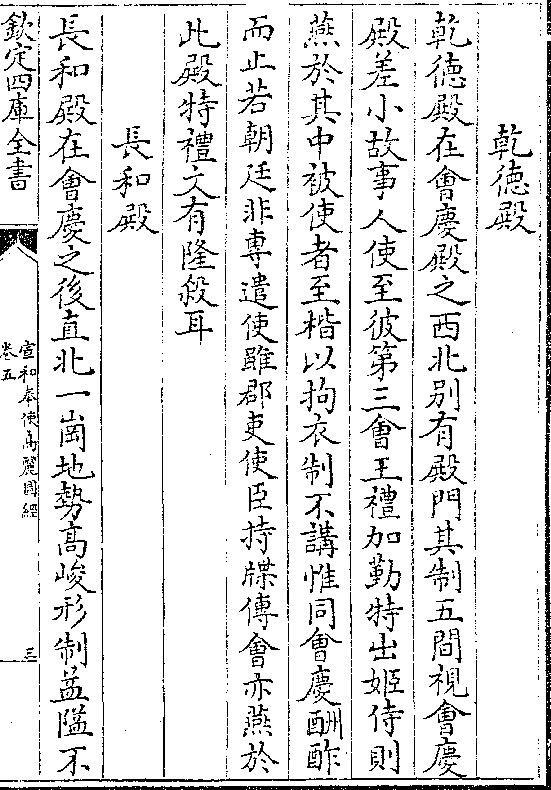 乾德殿
乾德殿在會慶殿之西北别有殿門其制五間視會慶
殿差小故事人使至彼第三會王禮加勤特出姬侍則
燕於其中被使者至楷以拘衣制不講惟同會慶酬酢
而止若朝廷非專遣使雖郡吏使臣持牒傳會亦燕於
此殿特禮文有隆殺耳
長和殿
長和殿在會慶之後直北一崗地勢高峻形制益隘不
欽定四庫全書
宣和奉使高麗圖經
卷五
三